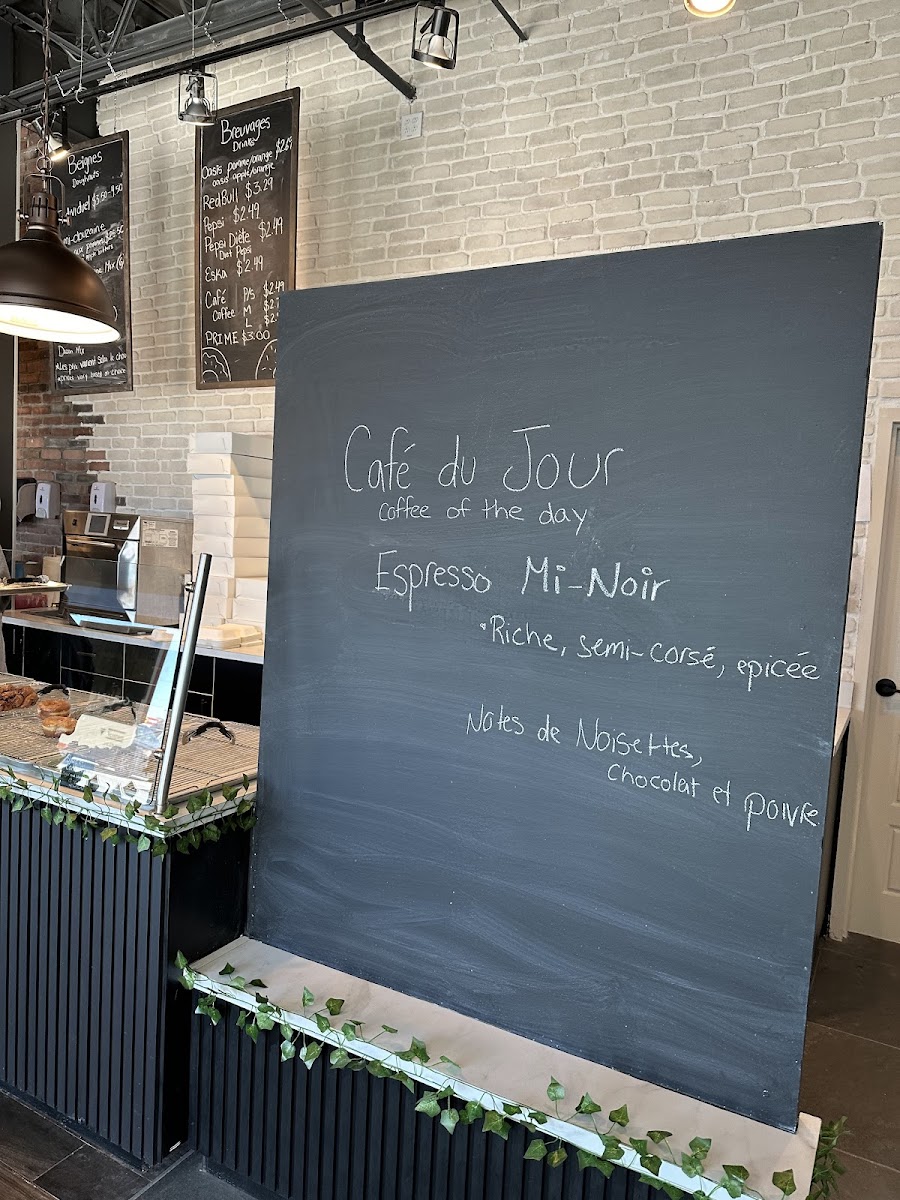 Beignes
Doughnuts
Dozen Mix
Breuvages
Drinks
Oasis pomme/orange $2.65
oasis apple/orange
RedBull $3.29
Pepsi $2.49
Pepsi Diète $2.49
Diet Pepsi
Eska $2.49
Café P/s $2.49
Coffee M
L
PRIME $3.00
Café du Jour
coffee of the day
Espresso Mi-Noir
•Riche, semi-corsé, epicée
Notes de Noisettes,
chocolat et poivre.